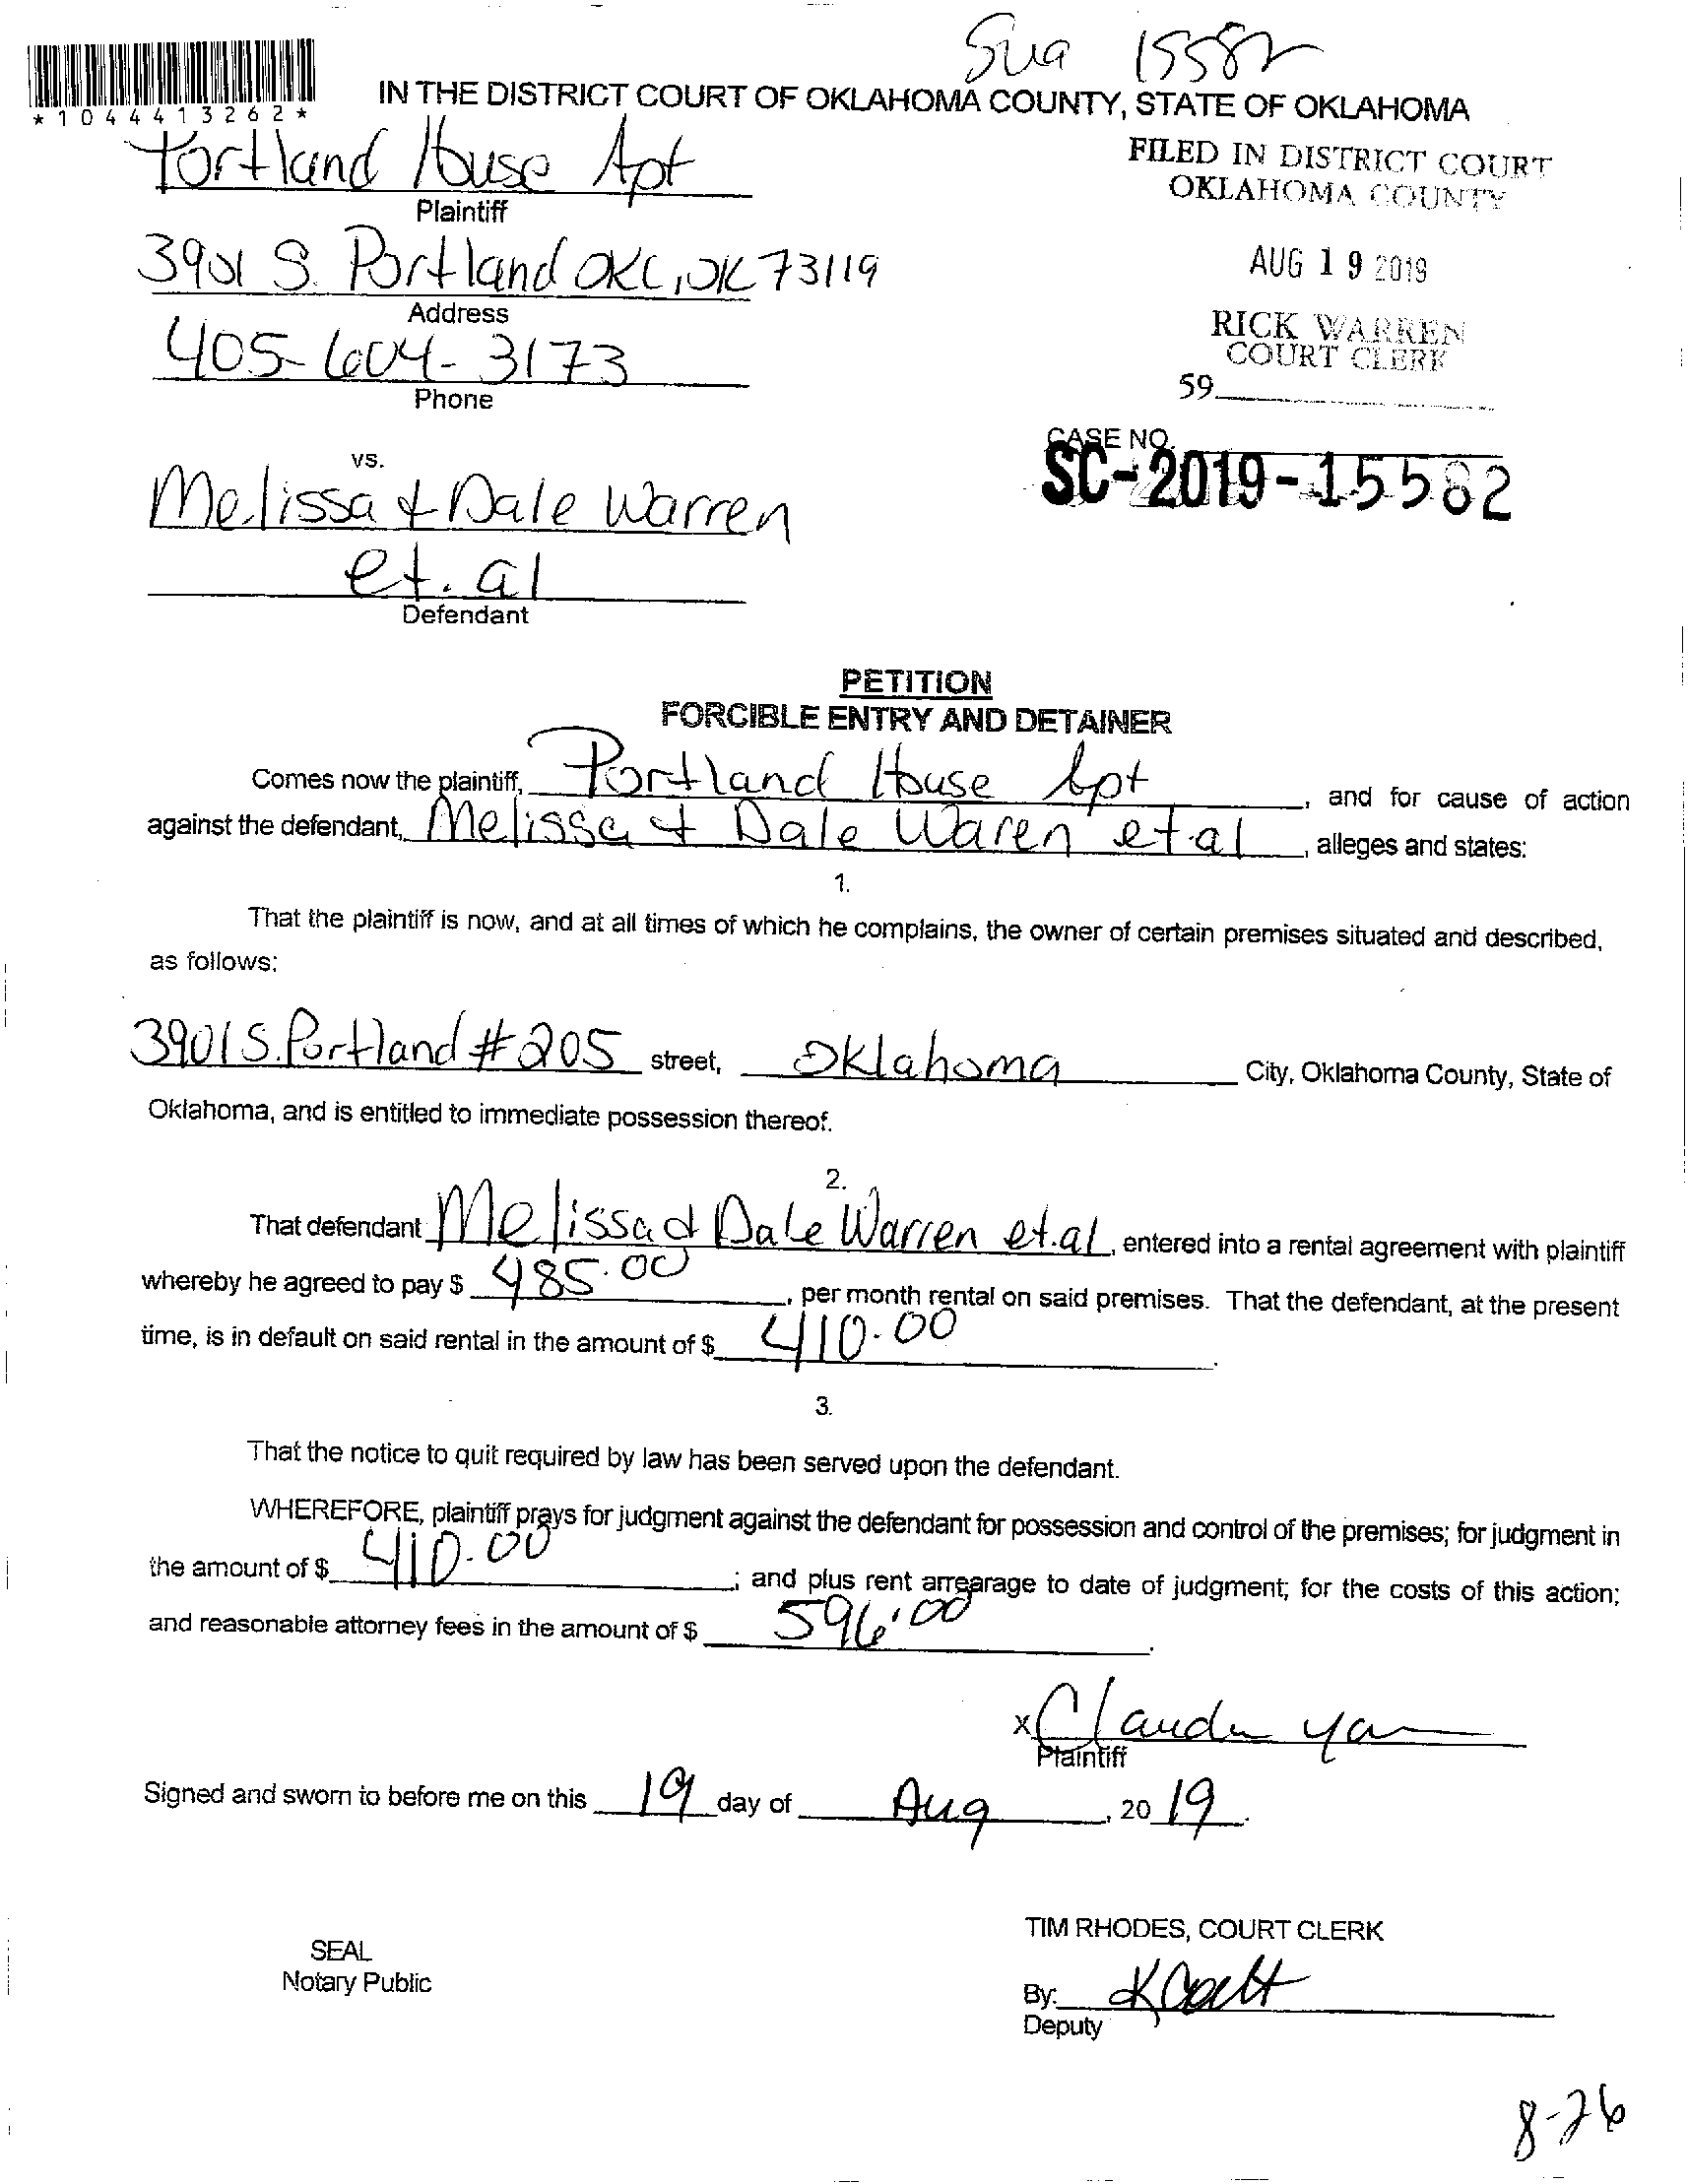 Sua 15582
*1044413262*
IN THE DISTRICT COURT OF OKLAHOMA COUNTY, STATE OF OKLAHOMA
Portland House Apt
Plaintiff
FILED IN DISTRICT COURT
OKLAHOMA COUNTY
3901 S. Portland OKC, OK 73119
Address
AUG 19 2019
405-604-3173
Phone
RICK WARREN
COURT CLERK
59
vs.
CASE NO.
SC-2019-15582
Melissa & Dale Warren
et. al
Defendant
PETITION
FORCIBLE ENTRY AND DETAINER
Comes now the plaintiff, Portland House Apt, and for cause of action
against the defendant, Melissa & Dale Waren et al, alleges and states:
1.
That the plaintiff is now, and at all times of which he complains, the owner of certain premises situated and described,
as follows:
3901 S. Portland #205 street, Oklahoma City, Oklahoma County, State of
Oklahoma, and is entitled to immediate possession thereof.
2.
That defendant Melissa & Dale Warren et.al, entered into a rental agreement with plaintiff
whereby he agreed to pay $ 485.00, per month rental on said premises. That the defendant, at the present
time, is in default on said rental in the amount of $ 410.00.
3.
That the notice to quit required by law has been served upon the defendant.
WHEREFORE, plaintiff prays for judgment against the defendant for possession and control of the premises; for judgment in
the amount of $ 410.00; and plus rent arrearage to date of judgment; for the costs of this action;
and reasonable attorney fees in the amount of $ 596.00.
x
Plaintiff
Signed and sworn to before me on this 19 day of Aug, 2019.
SEAL
Notary Public
TIM RHODES, COURT CLERK
By:
Deputy
8-26